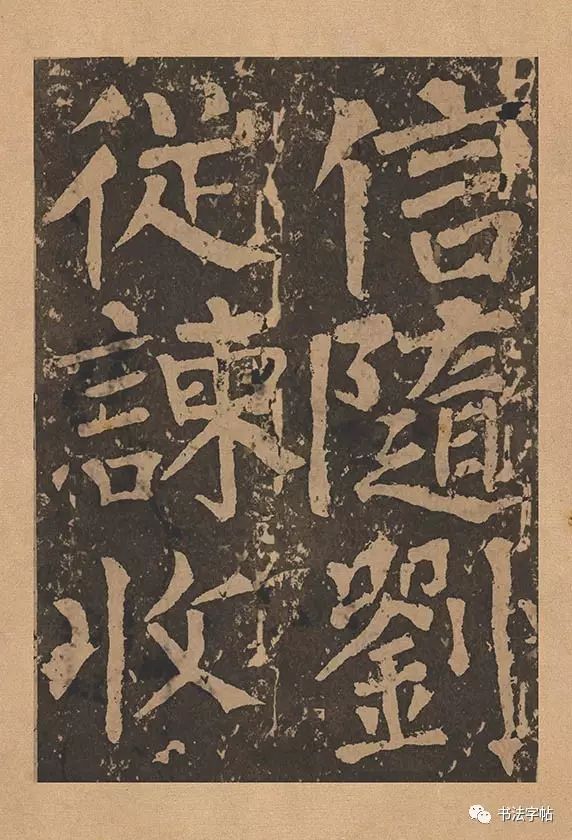 信隨劉
従諫收
书法字帖